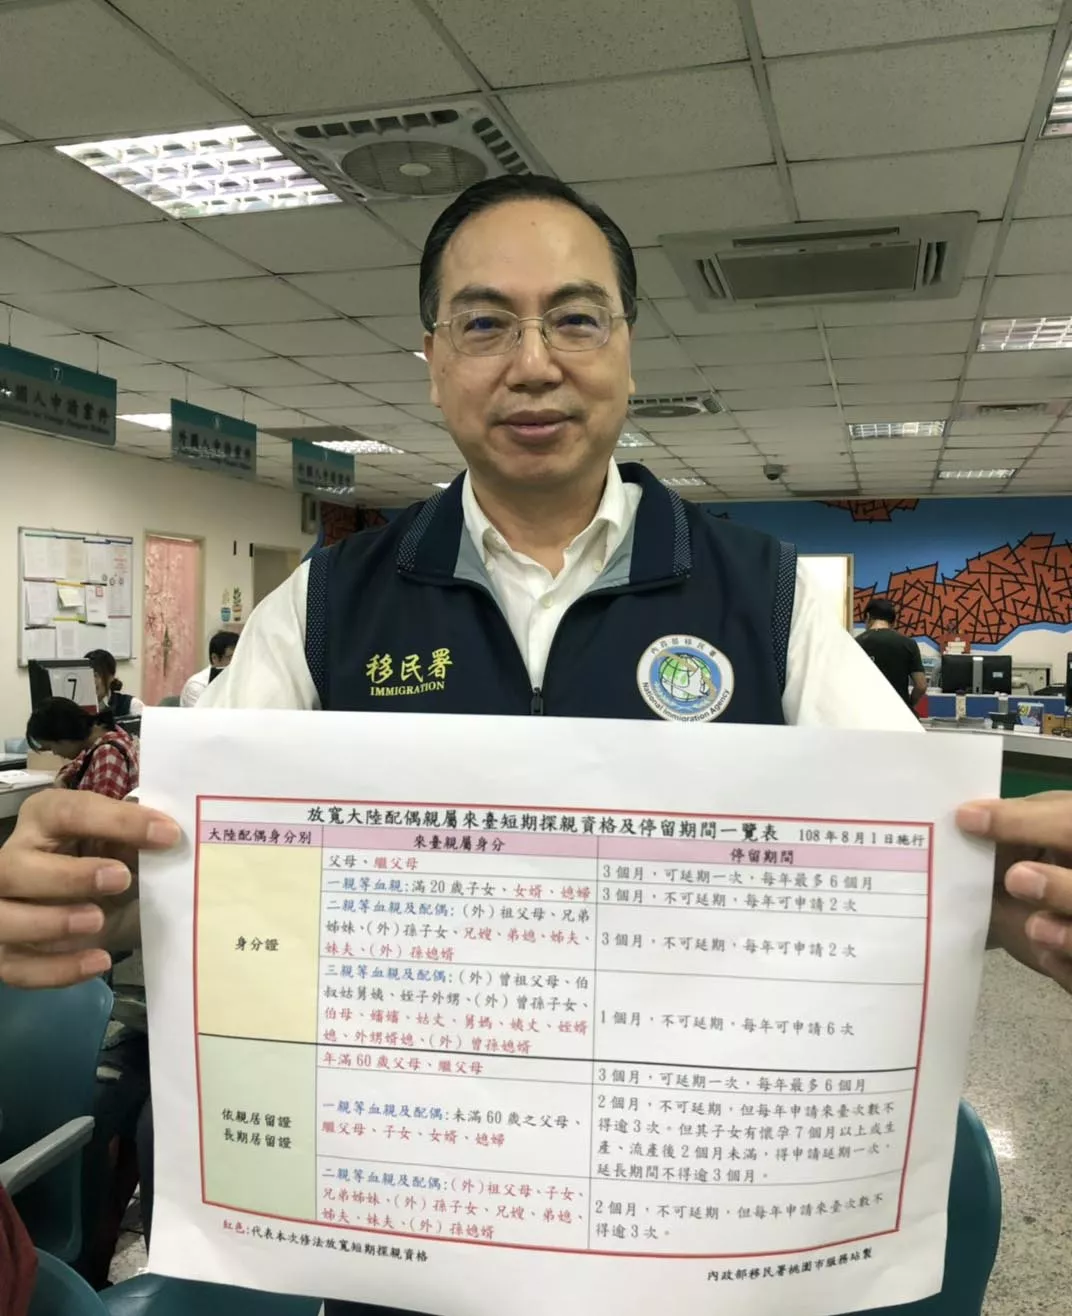 7
外國人申請案件
8
外國人申請案件
移民署
IMMIGRATION
內政部移民署
National Immigration Agency
7
放寬大陸配偶親屬來臺短期探親資格及停留期間一覽表 108年8月1日施行
大陸配偶身分別 來臺親屬身分 停留期間
父母、繼父母 3個月,可延期一次,每年最多6個月
一親等血親:滿20歲子女、女婿、媳婦 3個月,不可延期,每年可申請2次
身分證
二親等血親及配偶:(外)祖父母、兄弟
姊妹、(外)孫子女、兄嫂、弟媳、姊夫、
妹夫、(外)孫媳婿
3個月,不可延期,每年可申請2次
三親等血親及配偶:(外)曾祖父母、伯
叔姑舅姨、姪子外甥、(外)曾孫子女、
伯母、嬸嬸、姑丈、舅媽、姨丈、姪婿
媳、外甥婿媳、(外)曾孫媳婿
1個月,不可延期,每年可申請6次
年滿60歲父母、繼父母 3個月,可延期一次,每年最多6個月
依親居留證
長期居留證
一親等血親及配偶:未滿60歲之父母、
繼父母、子女、女婿、媳婦
2個月,不可延期,但每年申請來臺次數不
得逾3次。但其子女有懷孕7個月以上或生
產、流產後2個月未滿,得申請延期一次,
延長期間不得逾3個月。
二親等血親及配偶:(外)祖父母、子女、
兄弟姊妹、(外)孫子女、兄嫂、弟媳、
姊夫、妹夫、(外)孫媳婿
2個月,不可延期,但每年申請來臺次數不
得逾3次。
紅色:代表本次修法放寬短期探親資格
內政部移民署桃園市服務站製